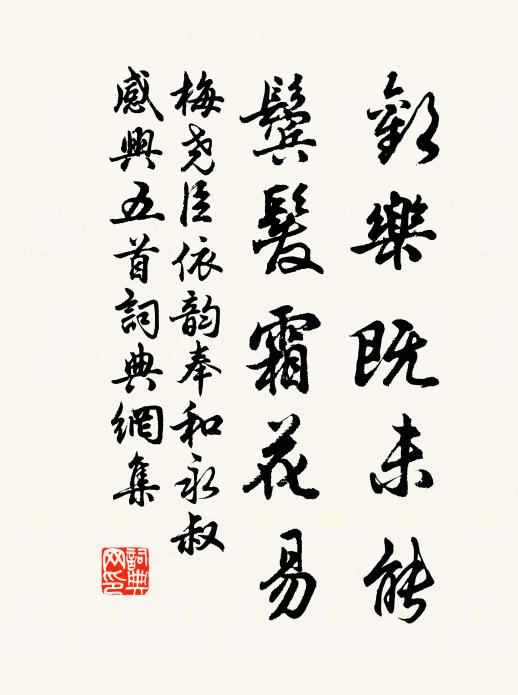 歡樂既未能
鬢髮霜花易
梅堯臣依韵奉和永叔
感興五首詞典網集
詞典
网印